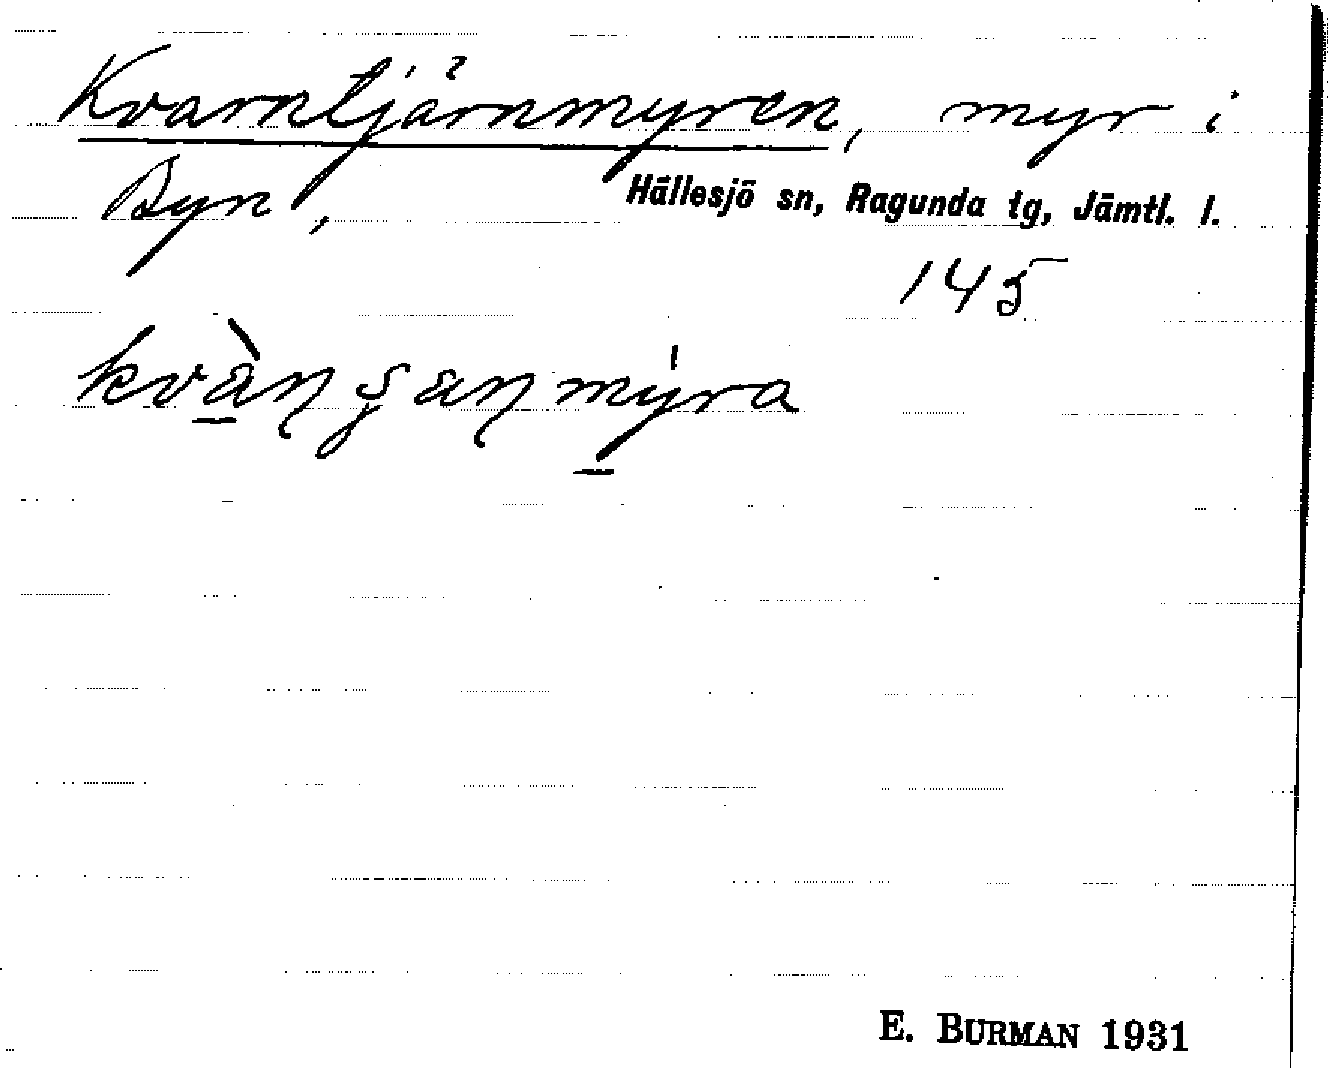 Kvarntjärnmyren, myr i
Byn, Hällesjö sn, Ragunda tg, Jämtl. l.
145
kvàŋ ʂaŋmýra
E. BURMAN 1931